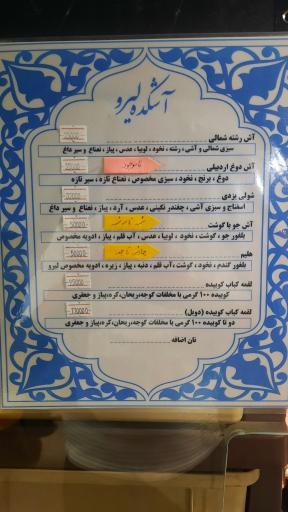 آشکده لیرو
آش رشته شمالی
سبزی شمالی و آشی، رشته، نخود، لوبیا، عدس، پیاز، نعناع و سیر داغ
آش دوغ اردبیلی
ناموجود
دوغ، برنج، نخود، سبزی مخصوص، نعناع تازه، سیر تازه
شولی یزدی
اسفناج و سبزی آشی، چغندر نگینی، عدس، آرد، پیاز، نعناع و سیر داغ
آش جو با گوشت
بلغور جو، گوشت، نخود، لوبیا، عدس، آب قلم، پیاز، ادویه مخصوص
هلیم
بلغور گندم، نخود، گوشت، آب قلم، دنبه، پیاز، زیره، ادویه مخصوص لیرو
لقمه کباب کوبیده
کوبیده ۱۰۰ گرمی با مخلفات گوجه،ریحان،کره،پیاز و جعفری
لقمه کباب کوبیده (دوبل)
دو تا کوبیده ۱۰۰ گرمی با مخلفات گوجه،ریحان،کره،پیاز و جعفری
نان اضافه